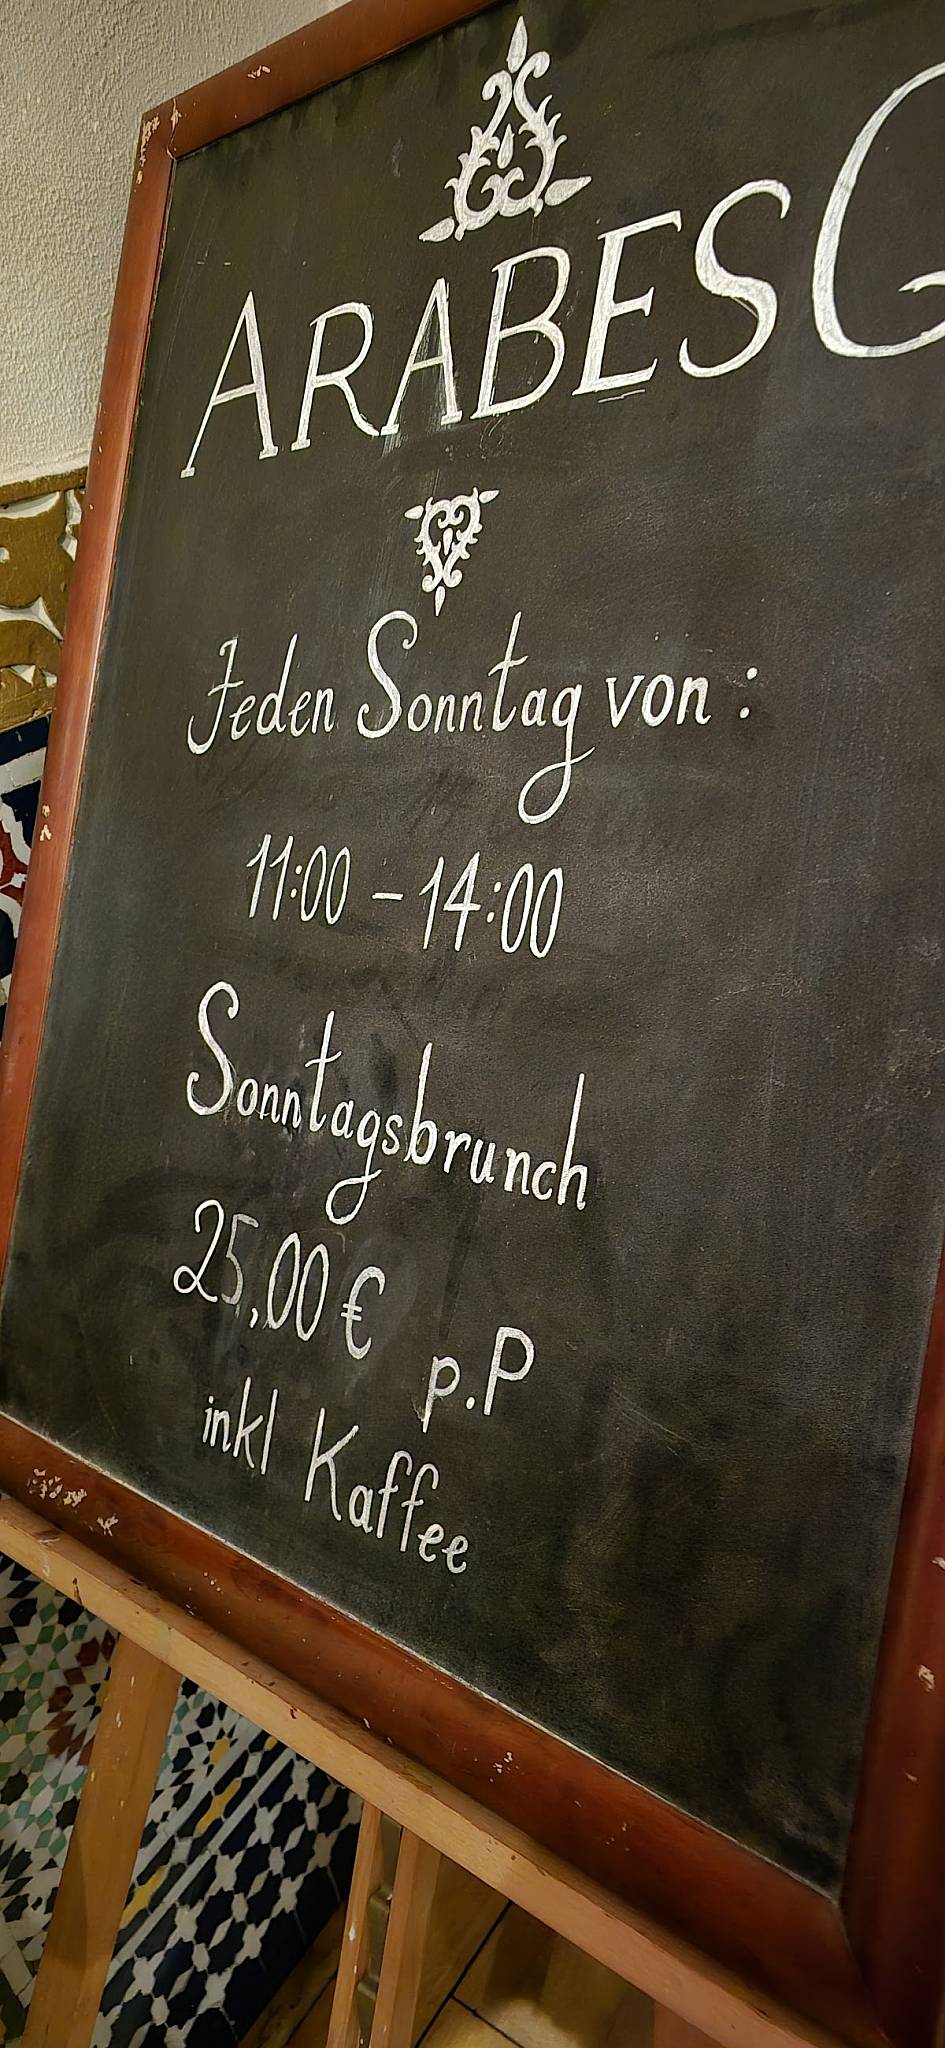 ARABESG
Jeden Sonntag von :
11:00 - 14:00
Sonntagsbrunch
25,00 € p.P
inkl Kaffee